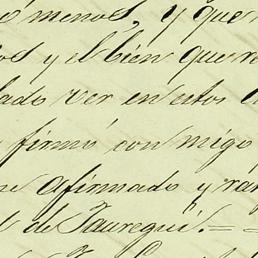 menos, y que
os y el bien que re
lado ver en estos
firmó con migo
afirmado y ra
de Jauregui. = =